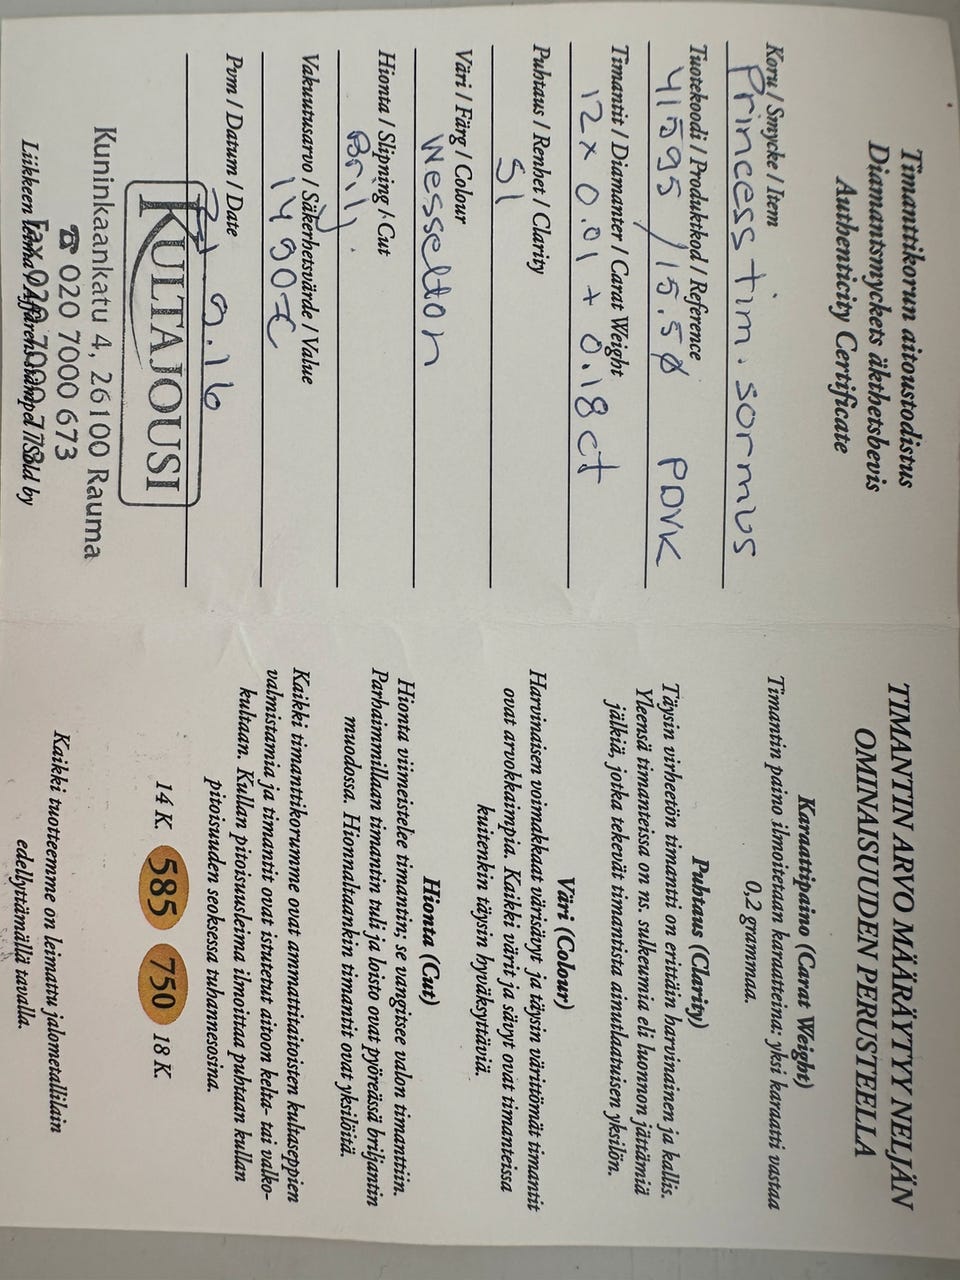 Timanttikorun aitoustodistus
Diamantsmyckets äkthetsbevis
Authenticity Certificate
Koru / Smycke / Item
Princess tim. sormus
Tuotekoodi / Produktkod / Reference
41595 / 15.5Ø PDVK
Timantit / Diamanter / Carat Weight
12x 0.01 + 0.18ct
Puhtaus / Renhet / Clarity
SI
Väri / Färg / Colour
Wesselton
Hionta / Slipning / Cut
Brilj.
Vakuutusarvo / Säkerhetsvärde / Value
1490€
Pvm / Datum / Date
9.16
KULTAJOUSI
Kuninkaankatu 4, 26100 Rauma
☎ 020 7000 673
Fax 020 7000
Liikkeen leima / Affärens stämpel / Sold by
TIMANTIN ARVO MÄÄRÄYTYY NELJÄN
OMINAISUUDEN PERUSTEELLA
Karaattipaino (Carat Weight)
Timantin paino ilmoitetaan karaatteina: yksi karaatti vastaa
0,2 grammaa.
Puhtaus (Clarity)
Täysin virheetön timantti on erittäin harvinainen ja kallis.
Yleensä timanteissa on ns. sulkeumia eli luonnon jättämiä
jälkiä, jotka tekevät timantista ainutlaatuisen yksilön.
Väri (Colour)
Harvinaisen voimakkaat värisävyt ja täysin värittömät timantit
ovat arvokkaimpia. Kaikki värit ja sävyt ovat timanteissa
kuitenkin täysin hyväksyttäviä.
Hionta (Cut)
Hionta viimeistelee timantin; se vangitsee valon timanttiin.
Parhaimmillaan timantin tuli ja loisto ovat pyöreässä briljantin
muodossa. Hionnaltaankin timantit ovat yksilöitä.
Kaikki timanttikorumme ovat ammattitaitoisten kultaseppien
valmistamia ja timantit ovat istutetut aitoon kelta- tai valko-
kultaan. Kullan pitoisuusleima ilmoittaa puhtaan kullan
pitoisuuden seoksessa tuhannesosina.
14 K. 585 750 18 K.
Kaikki tuotteemme on leimattu jalometallilain
edellyttämällä tavalla.